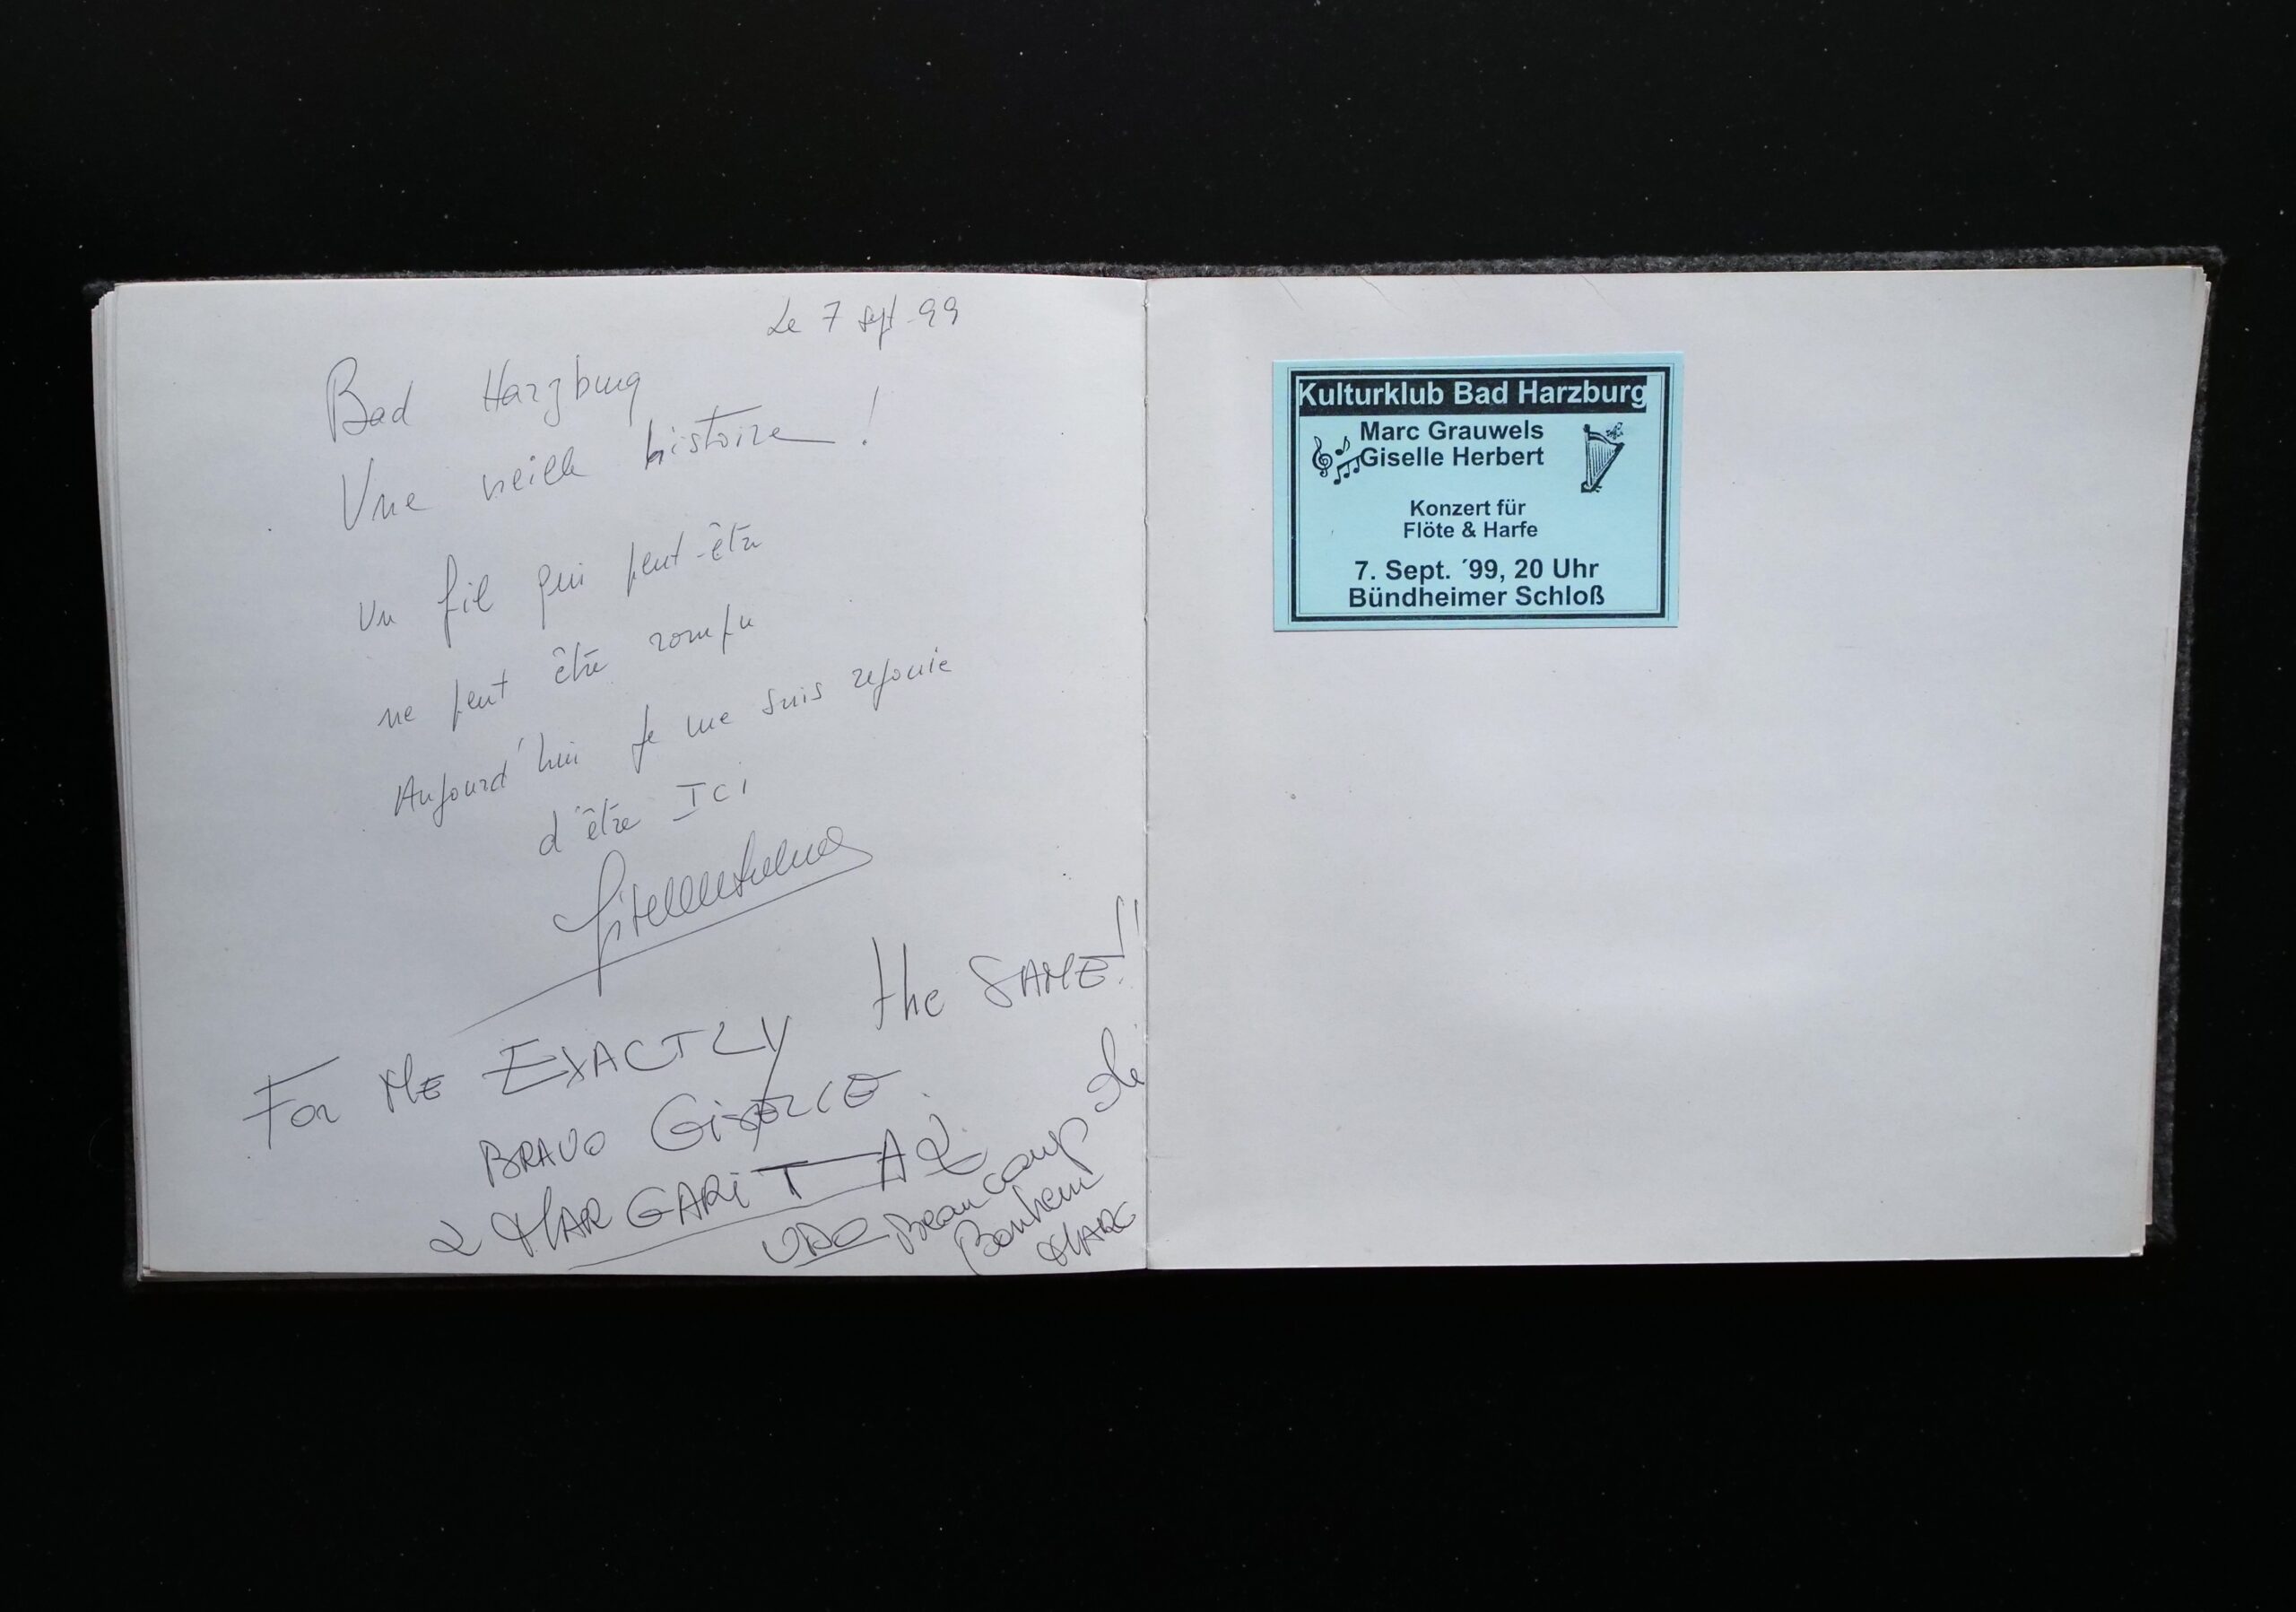 Le 7 sept 99
Bad Harzburg
Une vieille histoire !
Un fil qui peut-être
ne peut être rompu
Aujourd'hui je me suis rejouie
d'être ICI
FOR ME EXACTLY the SAME!!
BRAVO GISELLE
& MARGARITA &
UDO Beaucoup de
Bonheur
MARC
Kulturklub Bad Harzburg
Marc Grauwels
Giselle Herbert
Konzert für
Flöte & Harfe
7. Sept. ´99, 20 Uhr
Bündheimer Schloß